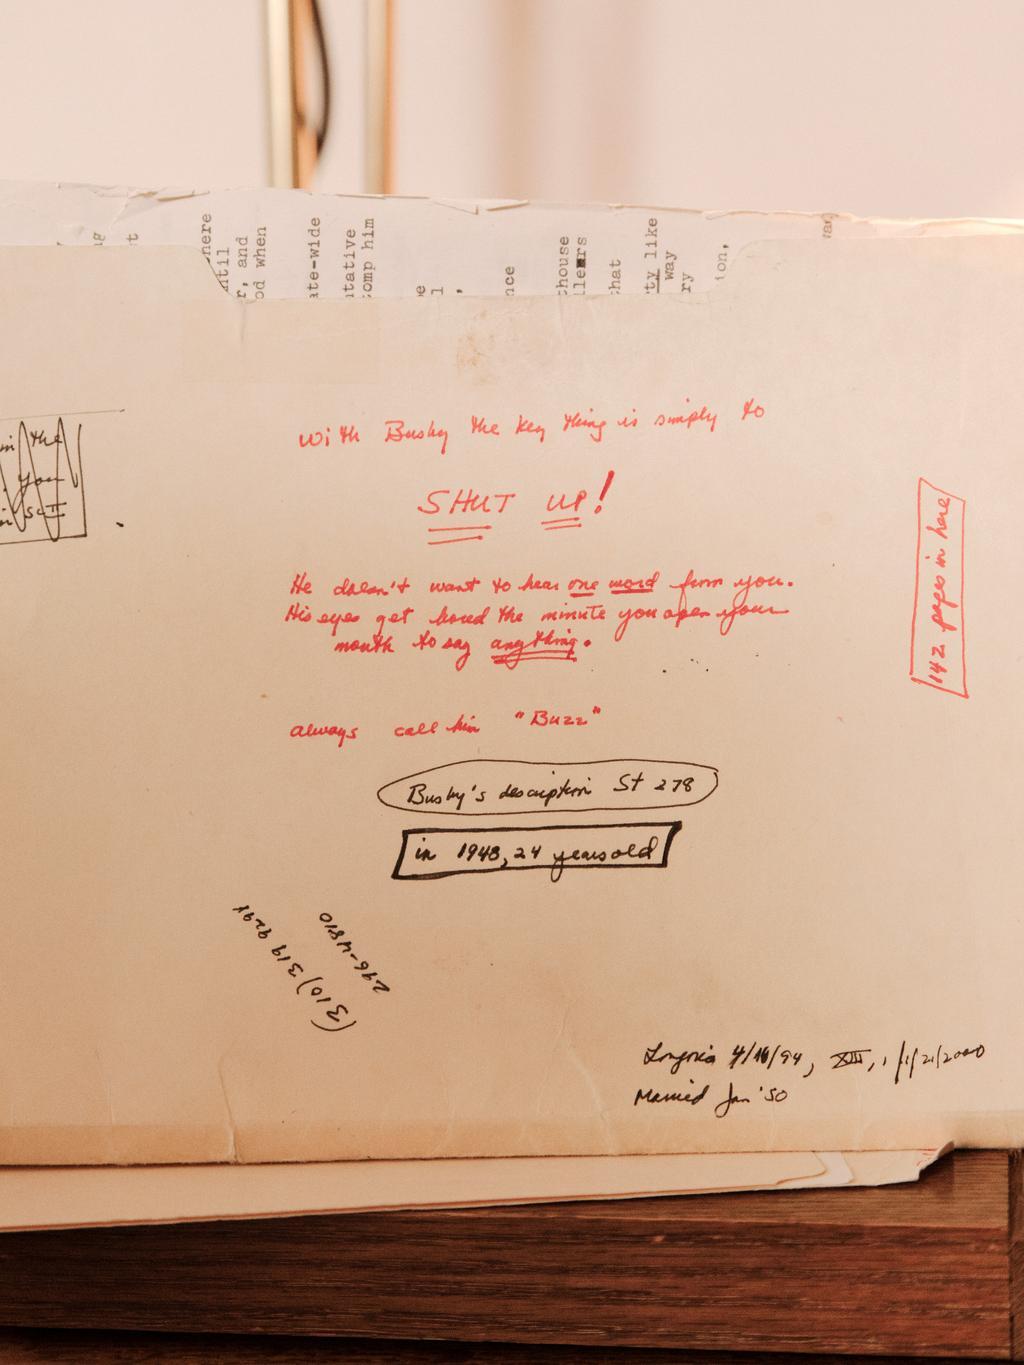 ng
t
here
until
r, and
od when
ate-wide
utative
comp him
be
l
,
nce
thouse
llears
that
ty like
way
ry
ion,
in the
you
in Sc II
With Busby the key thing is simply to
SHUT UP!
He doesn't want to hear one word from you.
His eyes get bored the minute you open your
mouth to say anything.
142 pages in here
always call him "Buzz"
Busby's description St 278
in 1948, 24 years old
(310) 319 9294
276-4810
Longoria 4/16/94, XIII, 1/21/2000
Married Jan '50